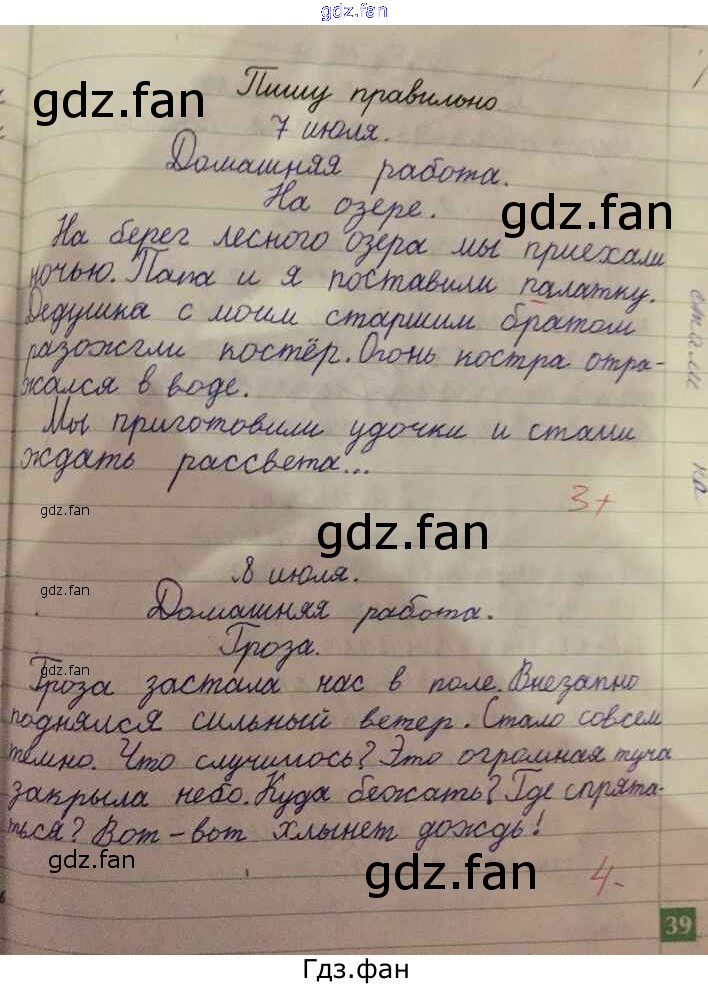 gdz.fan
Пишу правильно
gdz.fan
7 июля.
Домашняя работа.
gdz.fan
На озере.
На берег лесного озера мы приехали
ночью. Папа и я поставили палатку.
Дедушка с моим старшим братом
разожгли костёр. Огонь костра отра-
жался в воде.
Мы приготовили удочки и стали
ждать рассвета...
3+
gdz.fan
gdz.fan
8 июля.
gdz.fan
Домашняя работа.
Гроза.
gdz.fan
Гроза застала нас в поле. Внезапно
поднялся сильный ветер. Стало совсем
темно. Что случилось? Это огромная туча
закрыла небо. Куда бежать? Где спрята-
ться? Вот-вот хлынет дождь!
gdz.fan
gdz.fan
4-
39
Гдз.фан